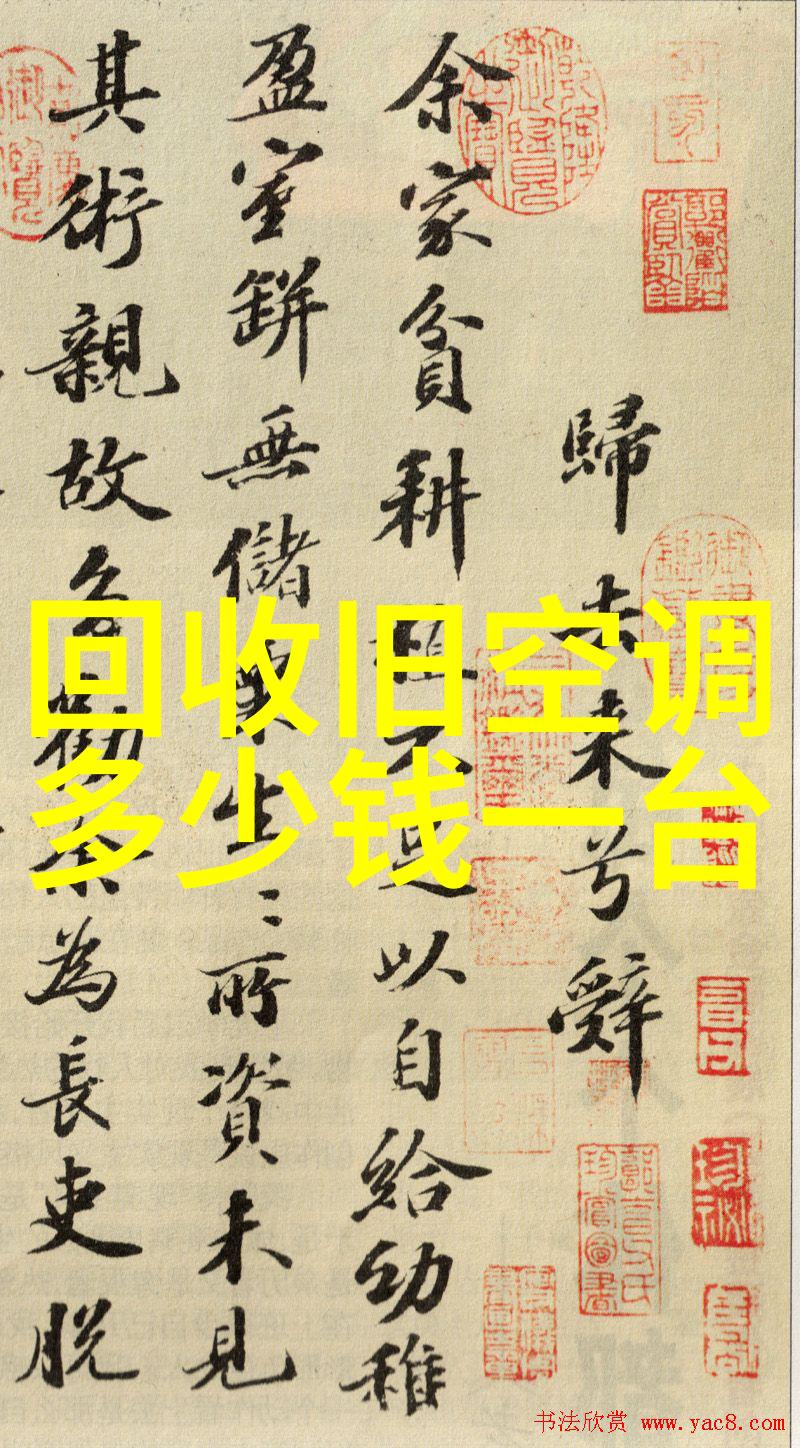 歸去来兮辭
余家貧耕植不足以自給幼稚
盈室缾無儲粟生〻所資未見
其術親故多勸余為長吏脱
回收旧空调
多少钱一台
书法欣赏 www.yac8.com